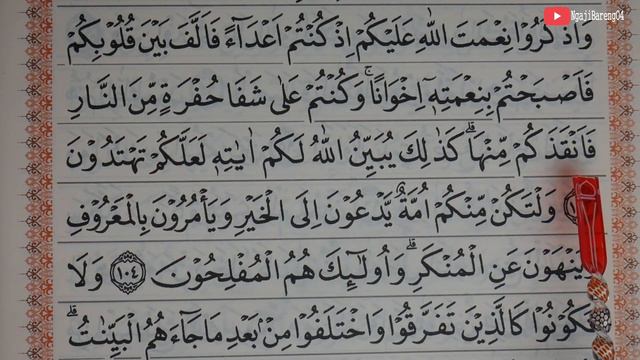 NgajiBareng04
وَاذْكُرُوْا نِعْمَتَ اللّٰهِ عَلَيْكُمْ اِذْ كُنْتُمْ اَعْدَاۤءً فَاَلَّفَ بَيْنَ قُلُوْبِكُمْ
فَاَصْبَحْتُمْ بِنِعْمَتِهٖٓ اِخْوَانًاۚ وَكُنْتُمْ عَلٰى شَفَا حُفْرَةٍ مِّنَ النَّارِ
فَاَنْقَذَكُمْ مِّنْهَاۗ كَذٰلِكَ يُبَيِّنُ اللّٰهُ لَكُمْ اٰيٰتِهٖ لَعَلَّكُمْ تَهْتَدُوْنَ
وَلْتَكُنْ مِّنْكُمْ اُمَّةٌ يَّدْعُوْنَ اِلَى الْخَيْرِ وَيَأْمُرُوْنَ بِالْمَعْرُوْفِ
وَيَنْهَوْنَ عَنِ الْمُنْكَرِۗ وَاُولٰۤىِٕكَ هُمُ الْمُفْلِحُوْنَ ١٠٤ وَلَا
تَكُوْنُوْا كَالَّذِيْنَ تَفَرَّقُوْا وَاخْتَلَفُوْا مِنْۢ بَعْدِ مَا جَاۤءَهُمُ الْبَيِّنٰتُۗ